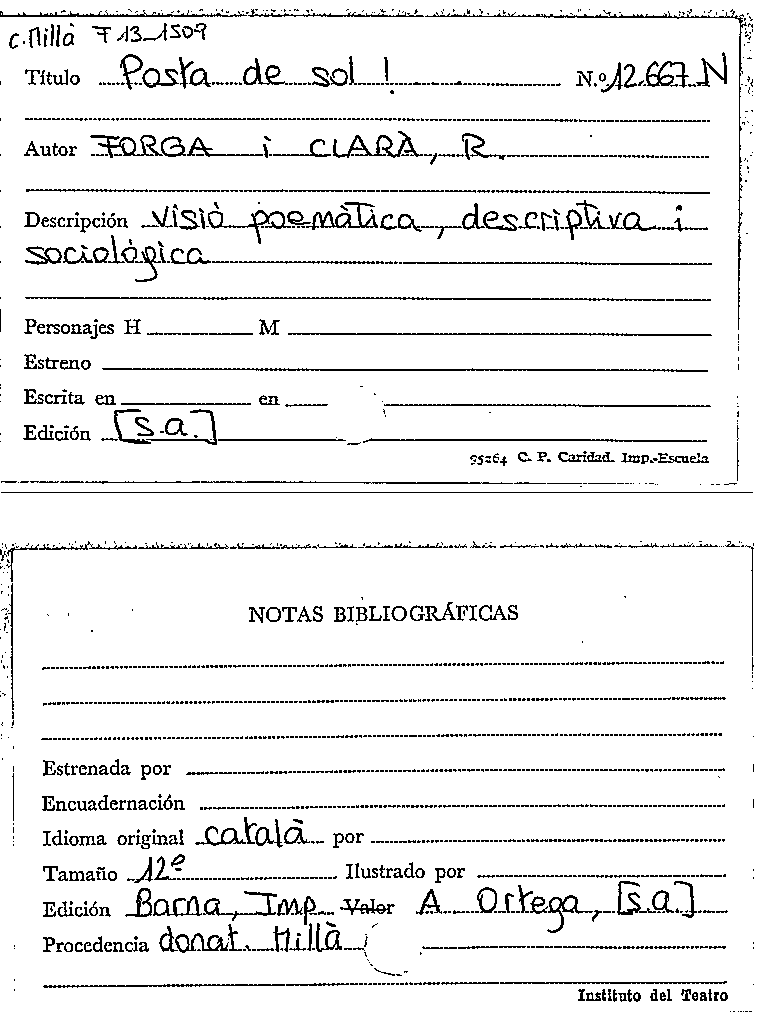 C. Millà F 13-1509
Título Posta de sol! N.º 12.667 N
Autor FORGA i CLARÀ, R.
Descripción visió poemàtica, descriptiva i
sociológica
Personajes H M
Estreno
Escrita en en
Edición [s.a.]
95264 C. P. Caridad. Imp.-Escuela
NOTAS BIBLIOGRÁFICAS
Estrenada por
Encuadernación
Idioma original català por
Tamaño 12º Ilustrado por
Edición Barna, Imp. Valor A. Ortega, [s.a.]
Procedencia donat. Millà
Instituto del Teatro